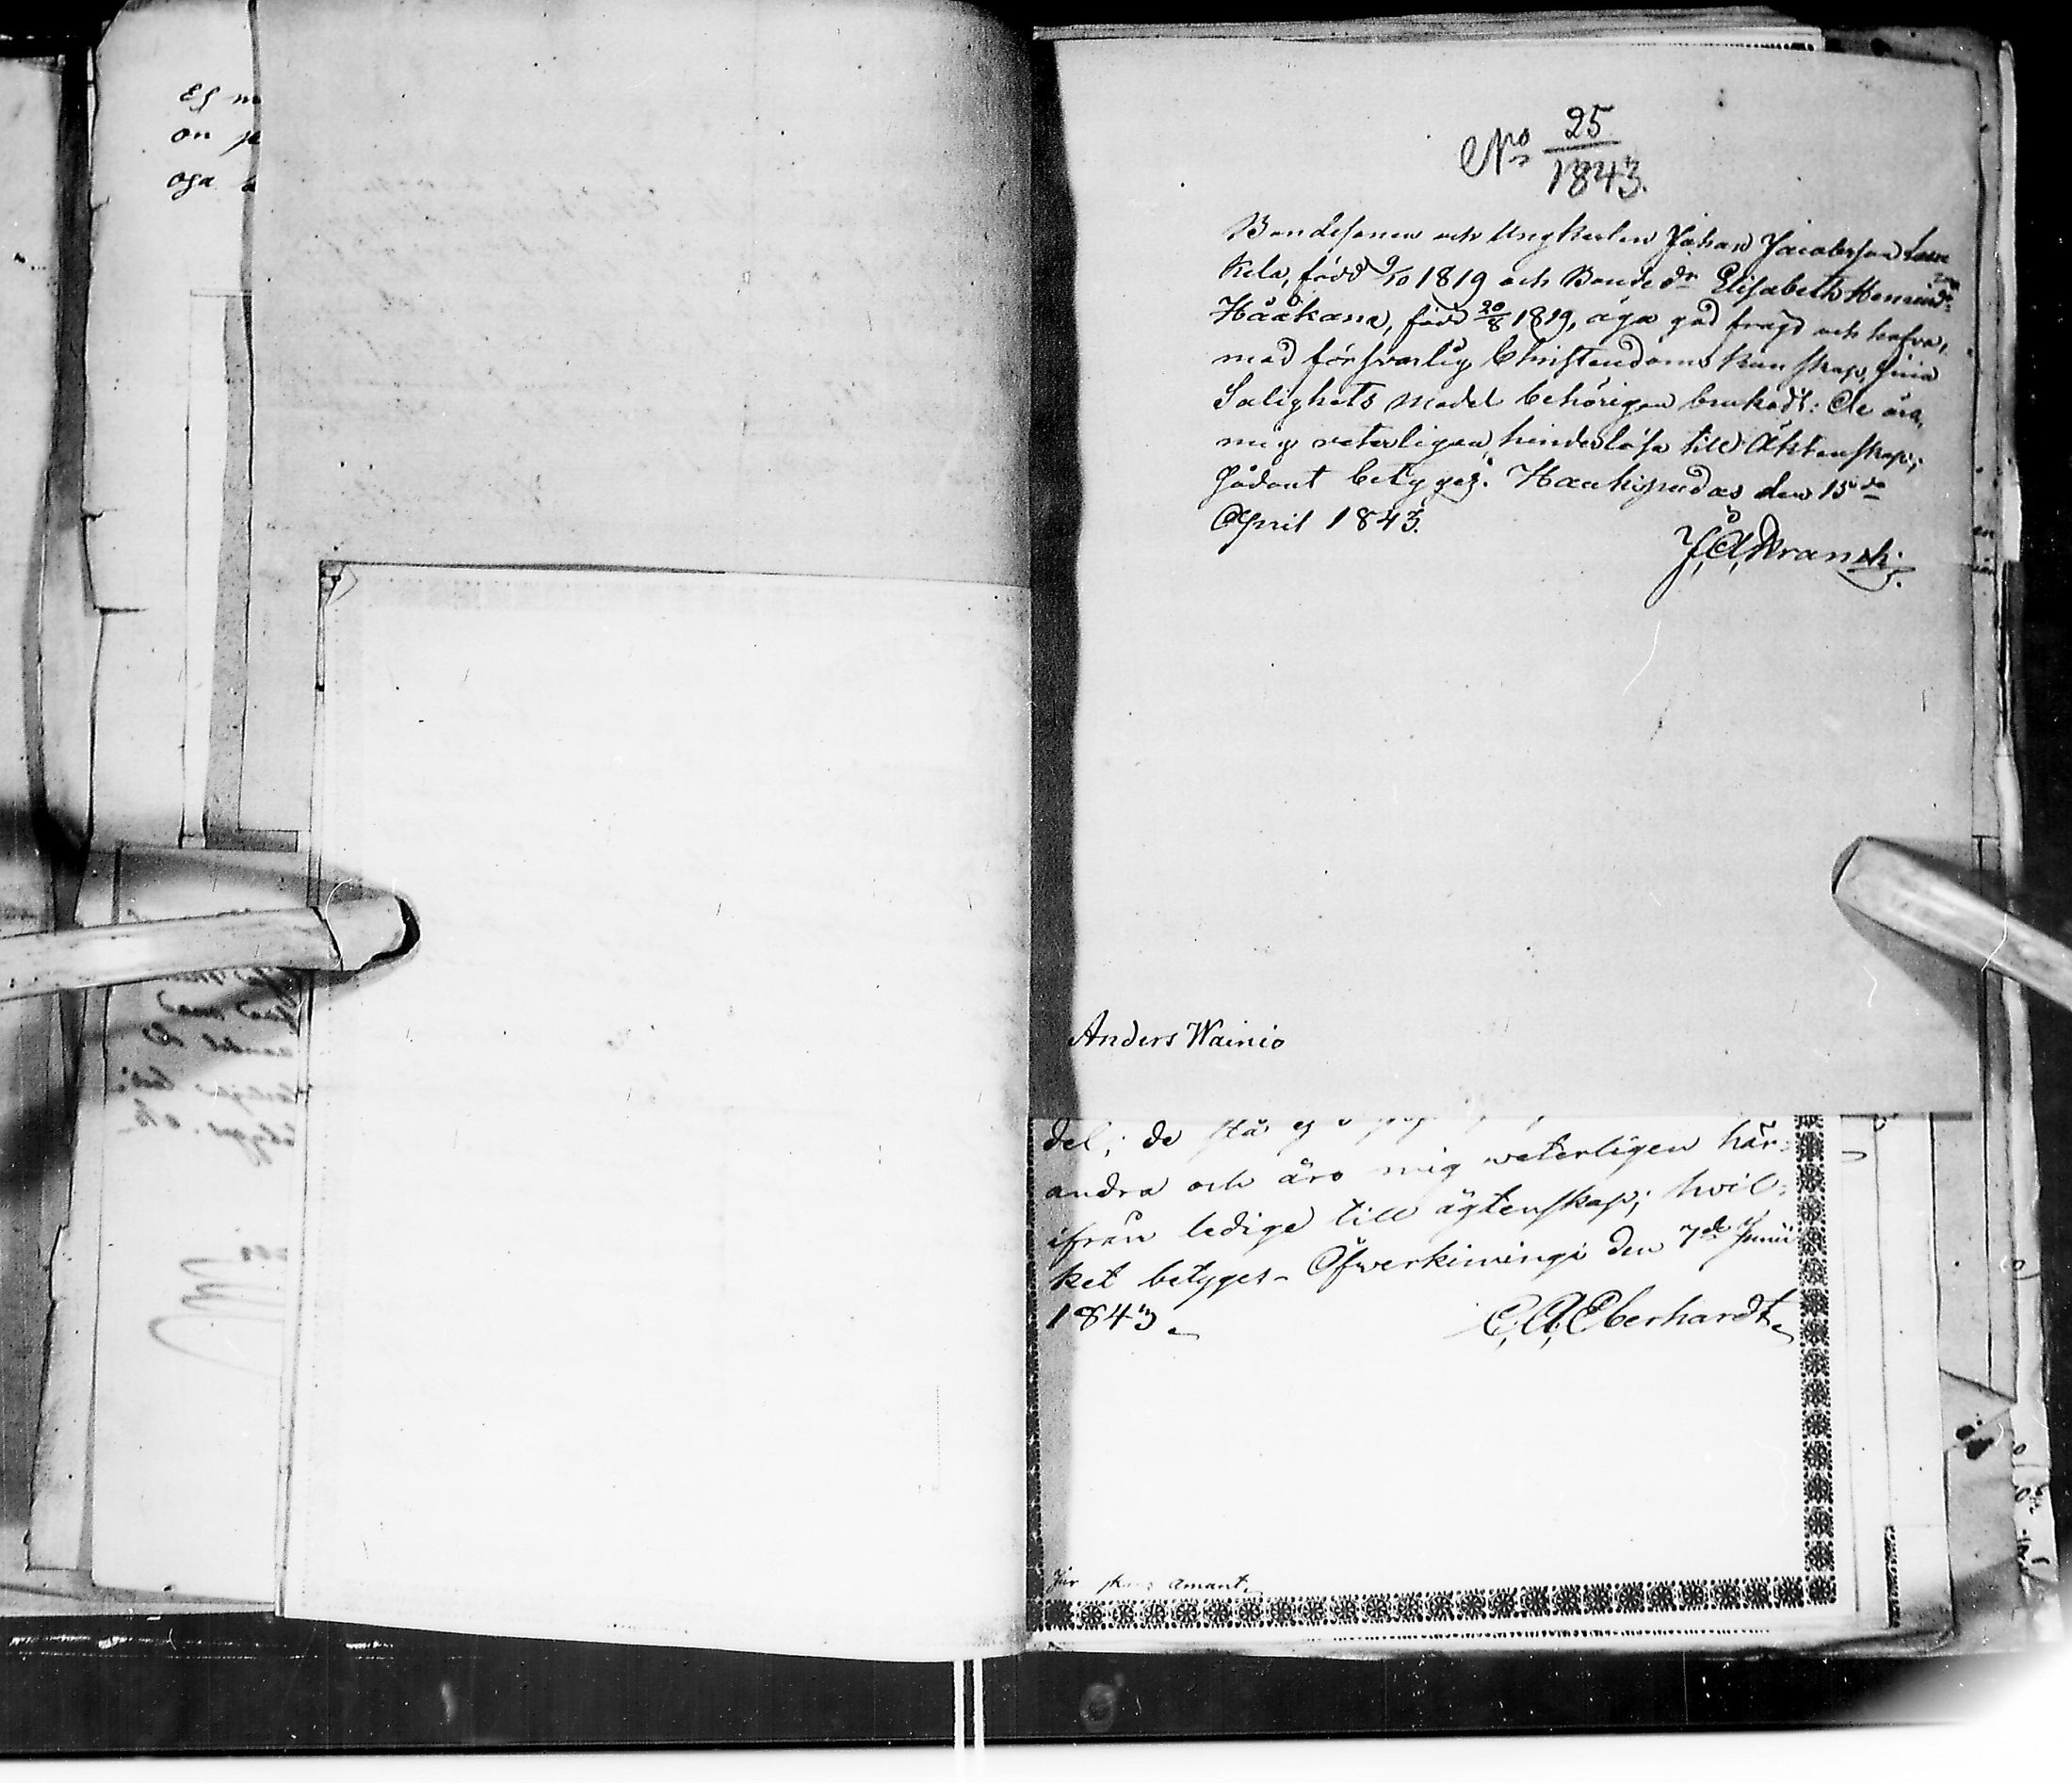 Ej
on
oga
No 25/1843.
Bondesonen och Ungkarlen Johan Jacobsson
kela, född 9/10 1819 och Bonde dr Elisabeth
Hååkana, född 20/8 1819, äga god fragd och hafva,
med försvarlig Christendoms kunskap, sina
Salighets medel behörigen brukadt: De äro,
mig veterligen, hinderlöse till Äktenskap;
sådant betygas. Haukipudas den 15de
April 1843.
J. A. Wranck.
Anders Wainio
del; de stå ej i
andra och äro mig veterligen här-
ifrån ledige till ägtenskap; hvil-
ket betyges - Öfwerkiminge den 7de Junii
1843.
C. A. Eberhardt.
amant.